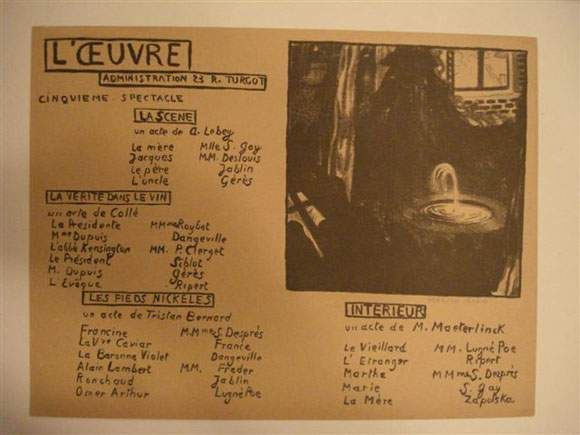 L'ŒUVRE
ADMINISTRATION 23 R. TURGOT
CINQUIEME SPECTACLE
LA SCENE
un acte de A. Lebey
La mère Mlle S. Gay
Jacques MM. Deslouis
Le père Jablin
L'oncle Gérès
LA VERITE DANS LE VIN
un acte de Collé
La Présidente MMmes Raybat
Mme Dupuis Dangeville
L'abbé Kensington MM. P. Clerget
Le Président Schlot
M. Dupuis Gérès
L'Evêque Ripert
LES PIEDS NICKELES
un acte de Tristan Bernard
Francine MMmes S. Desprès
La Vve Caviar France
La Baronne Violet Dangeville
Alain Lambert MM. Freder
Ronchaud Jablin
Omer Arthur Lugné Poe
INTERIEUR
un acte de M. Maeterlinck
Le Vieillard MM. Lugné Poe
L'Etranger Ripert
Marthe MMmes S. Desprès
Marie S. Gay
La Mère Zapolska